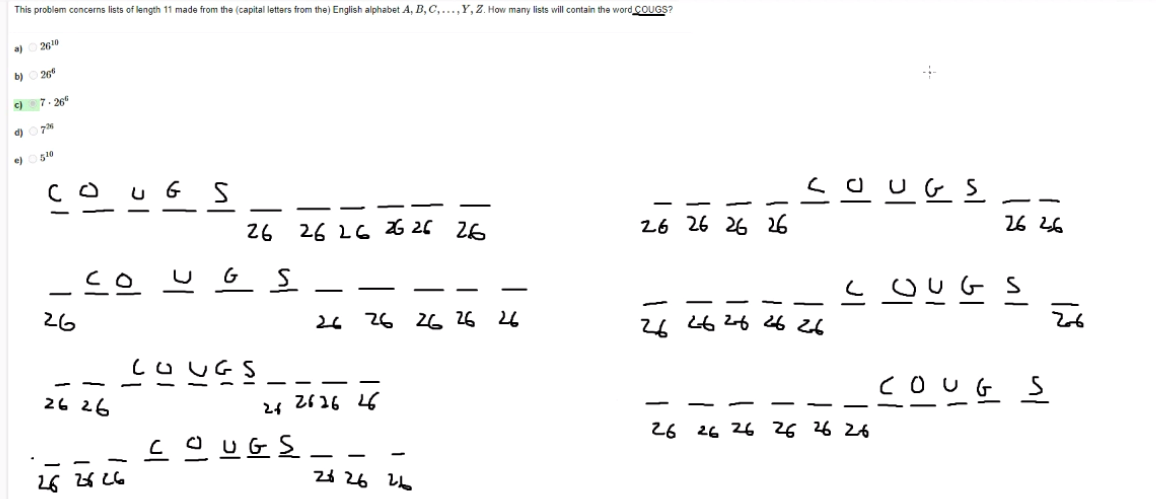 This problem concerns lists of length 11 made from the (capital letters from the) English alphabet A, B, C, ..., Y, Z. How many lists will contain the word COUGS?
a) 26^10
b) 26^6
c) 7 · 26^6
d) 7^26
e) 5^10
C O U G S
26 26 26 26 26 26
C O U G S
26 26 26 26 26 26
C O U G S
26 26 26 26 26 26
C O U G S
26 26 26 26 26 26
C O U G S
26 26 26 26 26 26
C O U G S
26 26 26 26 26 26
C O U G S
26 26 26 26 26 26